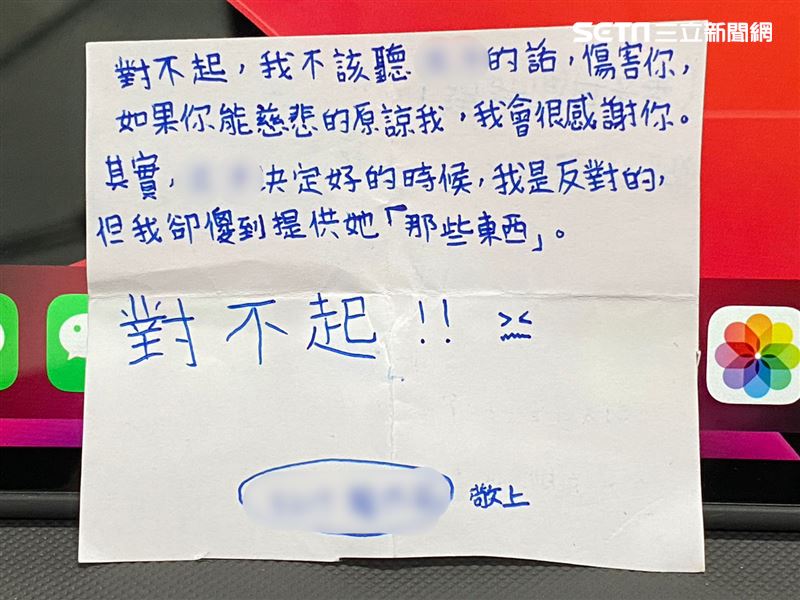 SETN三立新聞網
對不起，我不該聽 的話，傷害你，
如果你能慈悲的原諒我，我會很感謝你。
其實， 決定好的時候，我是反對的，
但我卻傻到提供她「那些東西」。
對不起!! ><
敬上